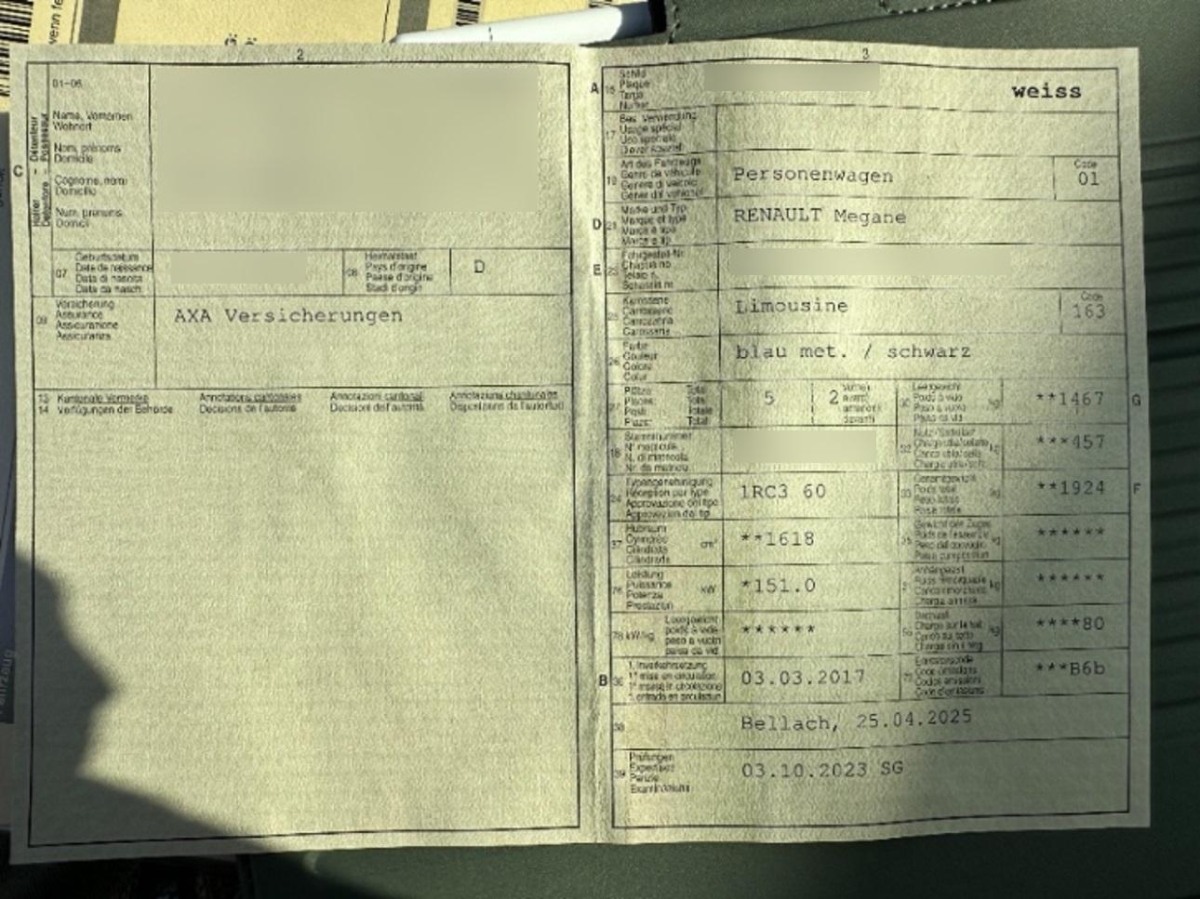 wenn fe
2
3
C
Halter - Détenteur
Detentore - Possessur
01-06
Name, Vornamen
Wohnort
Nom, prénoms
Domicile
Cognome, nomi
Domicilio
Num, prenums
Domicil
07
Geburtsdatum
Date de naissance
Data di nascita
Data da nasch.
08
Heimatstaat
Pays d'origine
Paese d'origine
Stadi d'origin
D
09
Versicherung
Assurance
Assicurazione
Assicuranza
AXA Versicherungen
13 Kantonale Vermerke
14 Verfügungen der Behörde
Annotations cantonales
Décisions de l'autorité
Annotazioni cantonali
Decisioni dell'autorità
Annotaziuns chantunalas
Disposiziuns da l'autoritad
A 15
Schild
Plaque
Targa
Numer
weiss
17
Bes. Verwendung
Usage spécial
Uso speciale
Diever spezial
19
Art des Fahrzeugs
Genre de véhicule
Genere di veicolo
Gener dal vehichel
Personenwagen
Code
01
D 21
Marke und Typ
Marque et type
Marca e tipo
Marca e tip
RENAULT Megane
E 23
Fahrgestell-Nr.
Châssis no
Telaio n.
25
Karosserie
Carrosserie
Carrozzeria
Carossaria
Limousine
Code
163
26
Farbe
Couleur
Colore
Colur
blau met. / schwarz
27
Plätze Total
Places Total
Posti Totale
Plazs Total
5
2
30
Leergewicht
Poids à vide
Peso a vuoto
kg
**1467
G
18
Stammnummer
N° matricule
N. di matricola
Nr. da matricla
32
kg
***457
24
Typengenehmigung
Réception par type
Approvazione del tipo
Approvaziun dal tip
1RC3 60
33
Gesamtgewicht
Poids total
Peso totale
Paisa totala
kg
**1924
F
37
Hubraum
Cylindrée
Cilindrata
Cilindrada
cm³
**1618
35
******
76
Leistung
Puissance
Potenza
Prestaziun
kW
*151.0
kg
******
78 kW/kg
Leergewicht
poids à vide
peso a vuoto
paisa da vid
******
55
Dachlast
kg
****80
B 36
1. Inverkehrsetzung
1re mise en circulation
1a messa in circolazione
1. entrada en circulaziun
03.03.2017
72
Emissionscode
Code émissions
Codice emissioni
Code d'emissiuns
***B6b
38
Bellach, 25.04.2025
39
Prüfungen
Expertises
Perizie
Examinaziuns
03.10.2023 SG